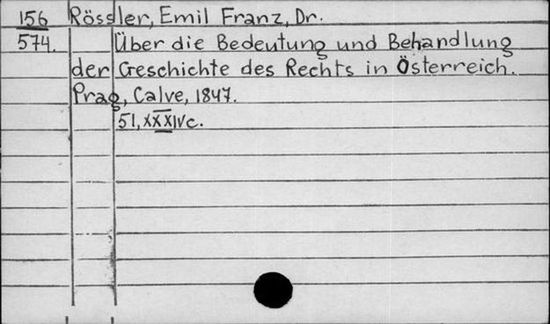 156 Rössler, Emil Franz, Dr.
574. Über die Bedeutung und Behandlung
der Geschichte des Rechts in Österreich.
Prag, Calve, 1847.
51, XXXIVc.